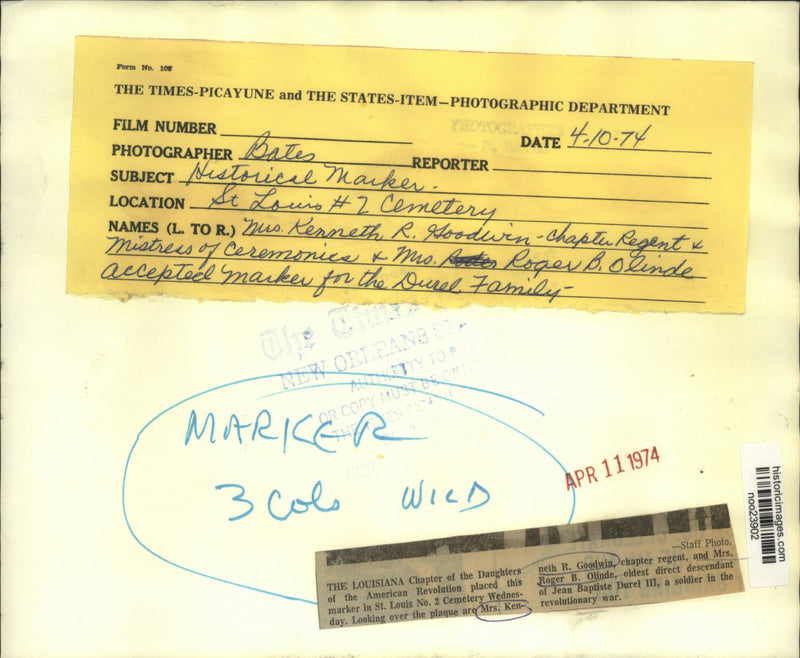 Form No. 102
THE TIMES-PICAYUNE and THE STATES-ITEM—PHOTOGRAPHIC DEPARTMENT
FILM NUMBER
DATE 4-10-74
PHOTOGRAPHER Bates
REPORTER
SUBJECT Historical Marker.
LOCATION St Louis # 2 Cemetery
NAMES (L. TO R.) Mrs. Kenneth R. Goodwin - Chapter Regent &
Mistress of Ceremonies & Mrs. Roger B. Olinde
accepted marker for the Durel Family -
The Times
NEW ORLEANS STA
AUTHORITY TO
OR COPY MUST BE
THE TIMES-PICA
MARKER
3 Cols WILD
APR 11 1974
historicimages.com
noo23902
—Staff Photo.
THE LOUISIANA Chapter of the Daughters
of the American Revolution placed this
marker in St. Louis No. 2 Cemetery Wednes-
day. Looking over the plaque are Mrs. Ken-
neth R. Goodwin, chapter regent, and Mrs.
Roger B. Olinde, oldest direct descendant
of Jean Baptiste Durel III, a soldier in the
revolutionary war.